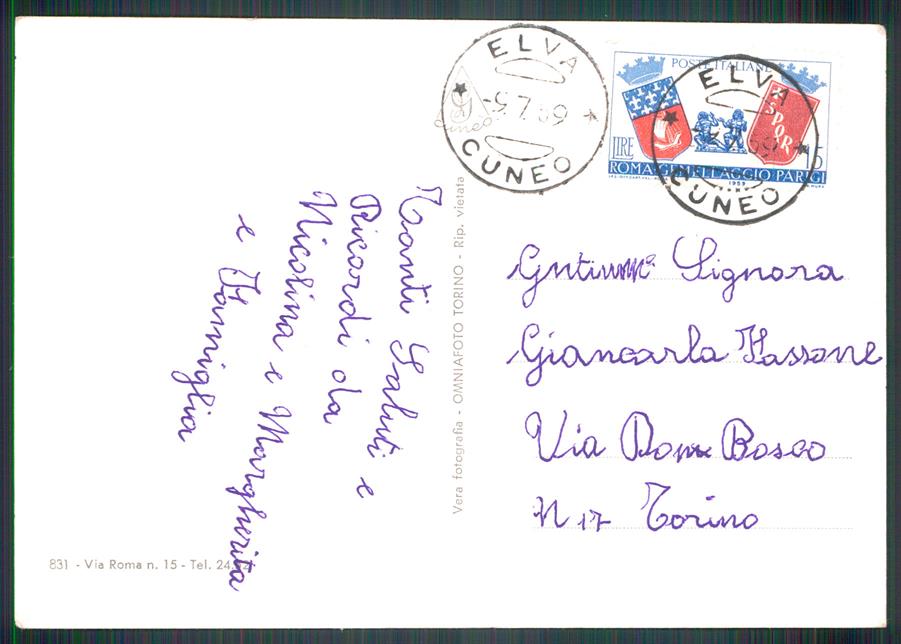 ELVA
-5.7.59
CUNEO
POSTE ITALIANE
ELVA
CUNEO
SPQR
LIRE 15
ROMA GEMELLAGGIO PARIGI
1959
Tanti Saluti e
Ricordi da
Nicolina e Margherita
e Famiglia
Vera fotografia - OMNIAFOTO TORINO - Rip. vietata
Signora
Giancarla Fassone
Via Dom Bosco
N 17 Torino
831 - Via Roma n. 15 - Tel.